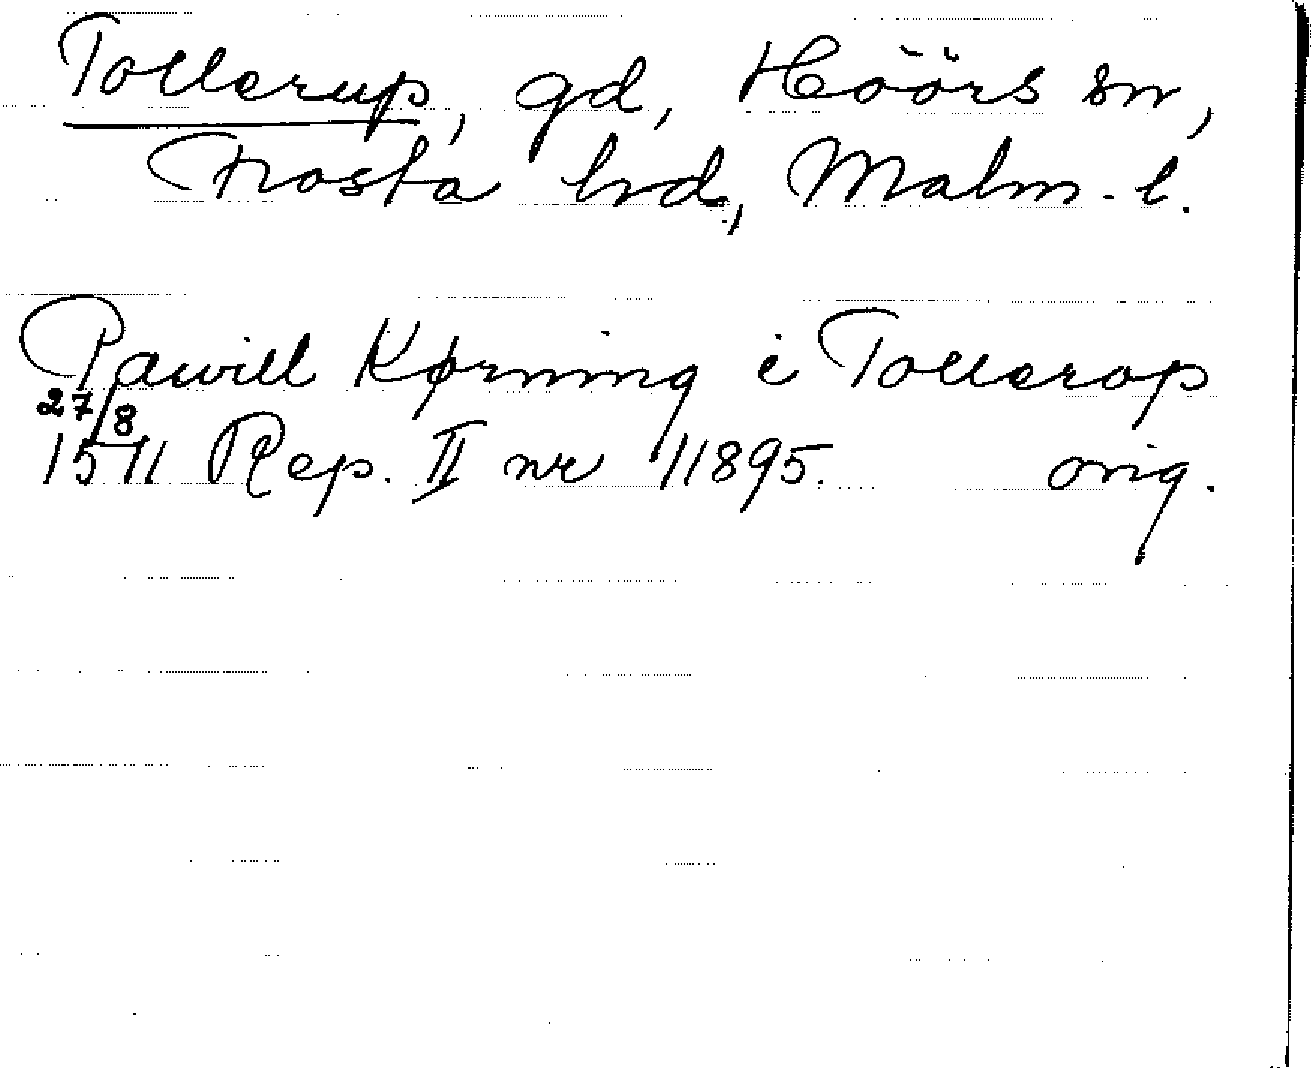 Tollerup, gd, Höörs sn,
Frosta hrd, Malm. l.
Pawill Kørning i Tollerop
27/8
1511 Rep. II nr 11895. orig.